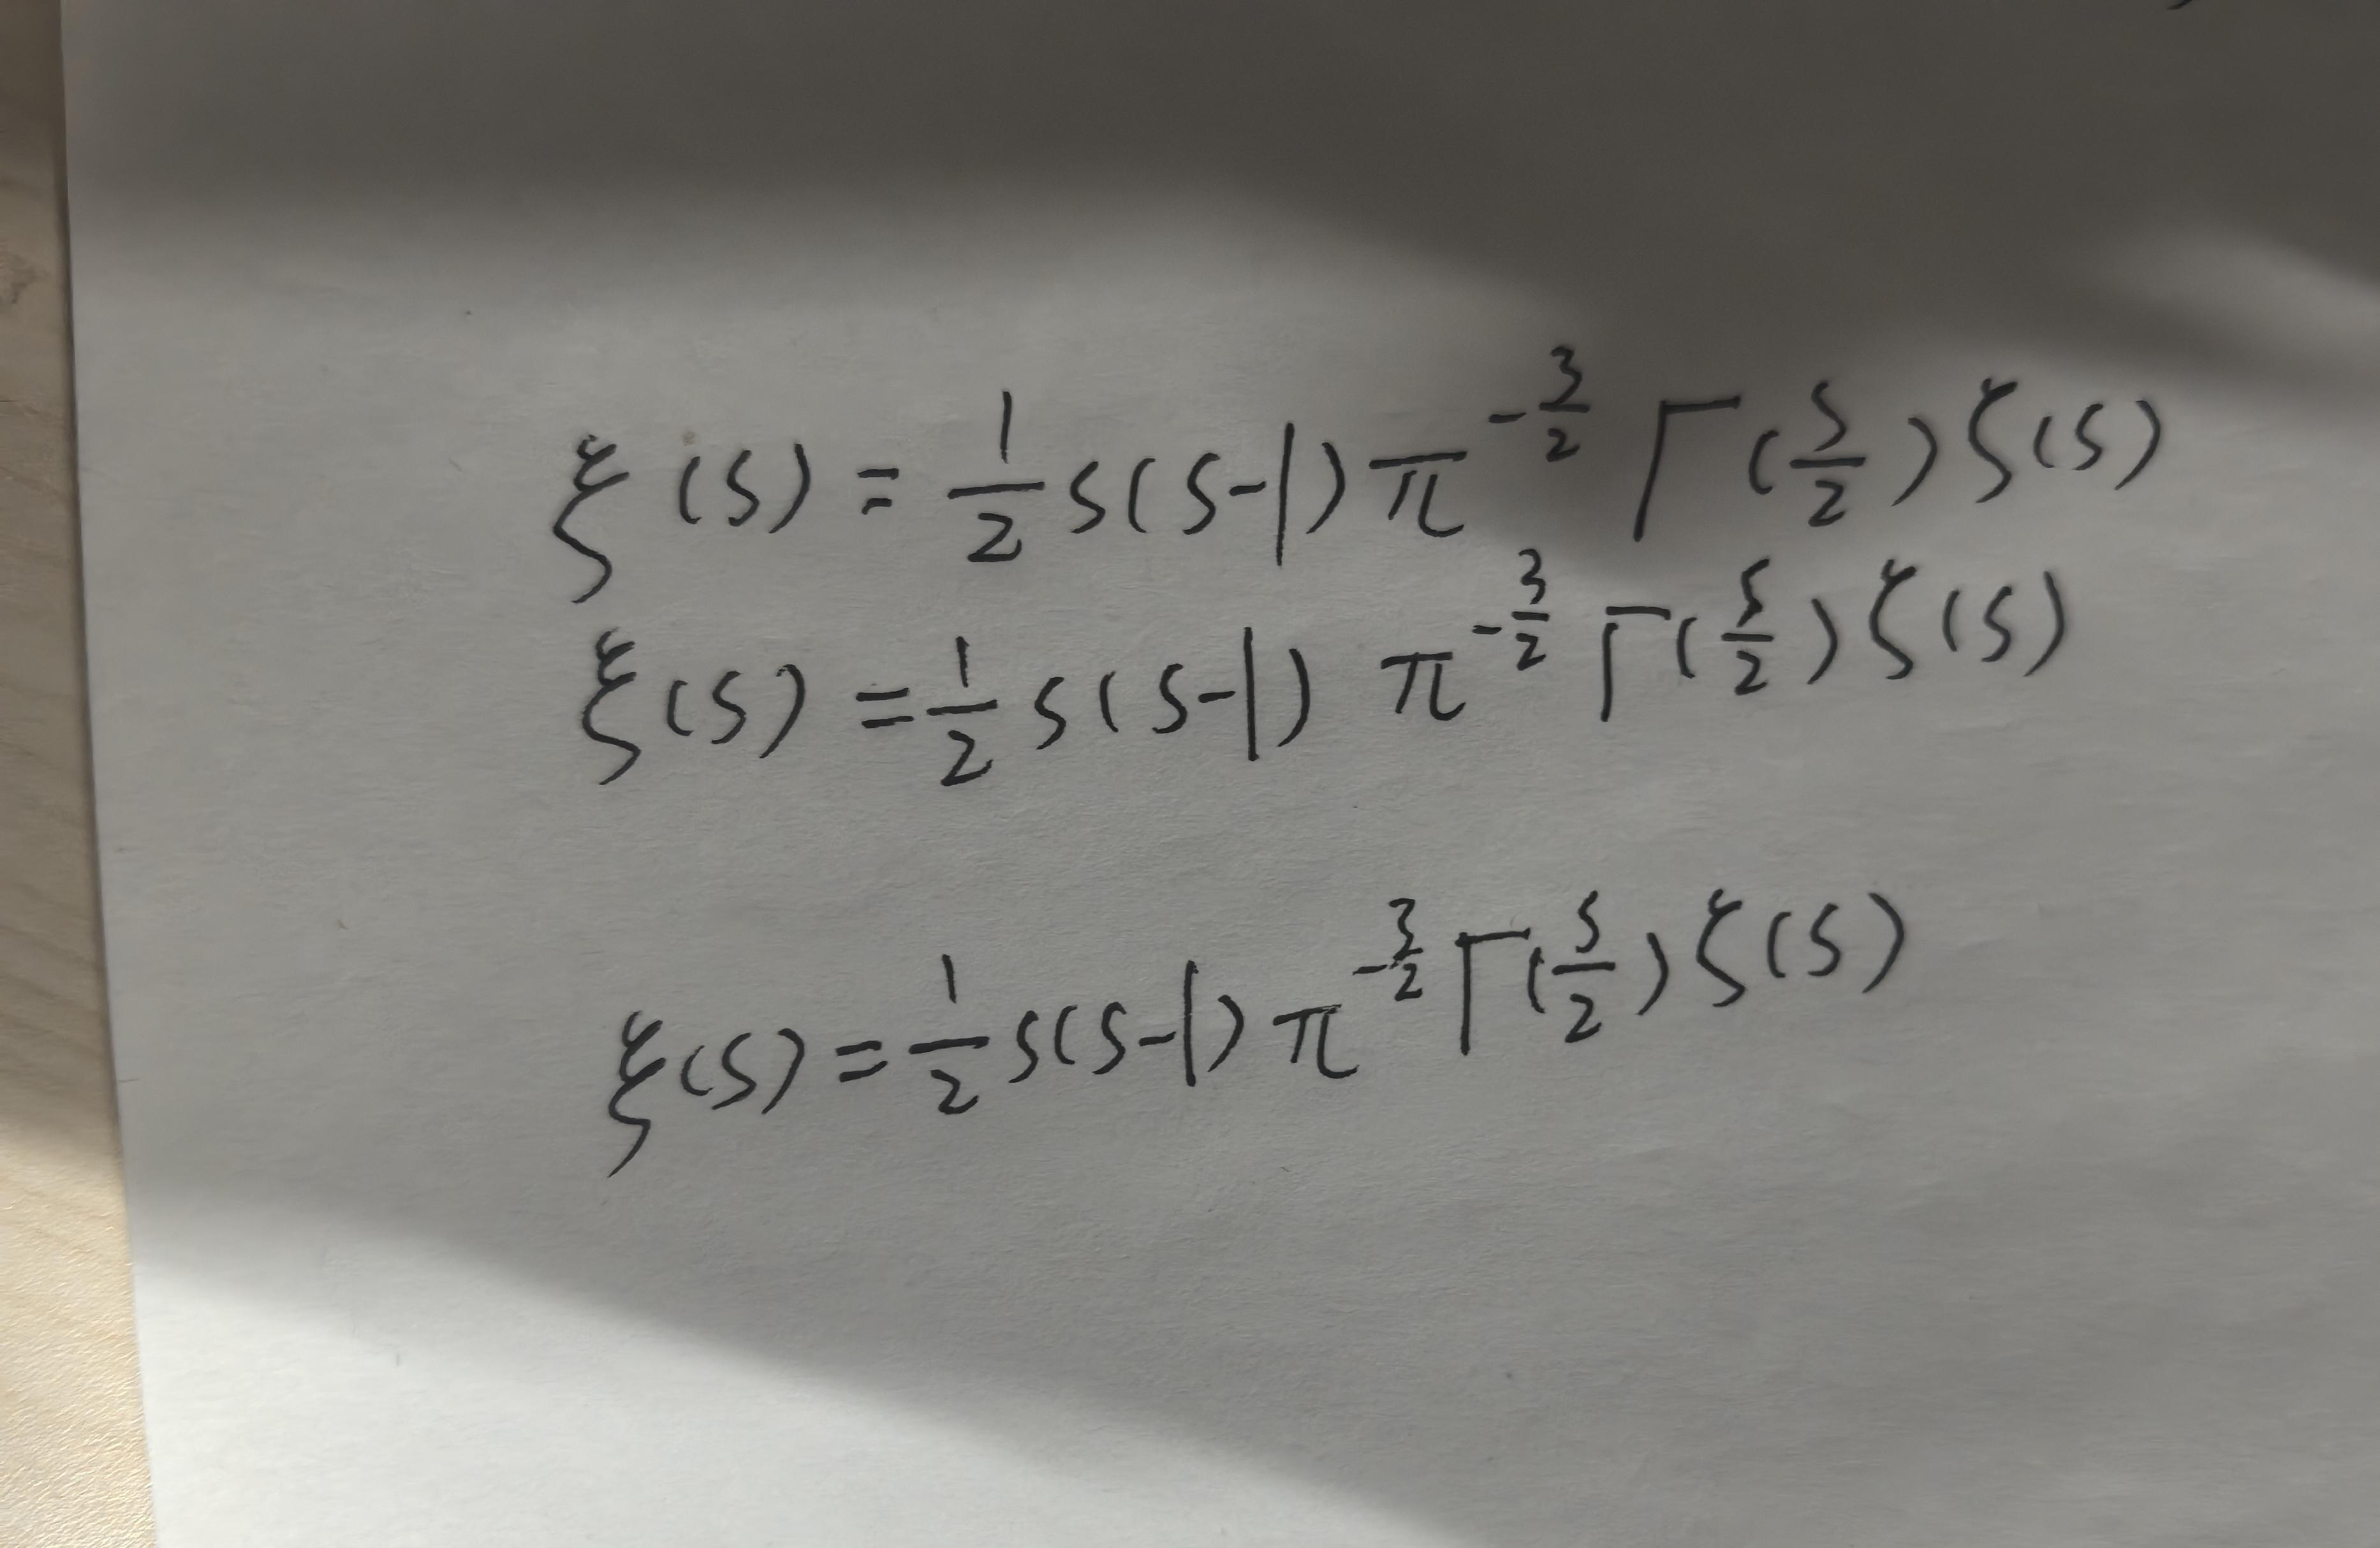 ξ(s) = 1/2 s(s-1) π^(-3/2) Γ(s/2) ζ(s)
ξ(s) = 1/2 s(s-1) π^(-3/2) Γ(s/2) ζ(s)
ξ(s) = 1/2 s(s-1) π^(-3/2) Γ(s/2) ζ(s)